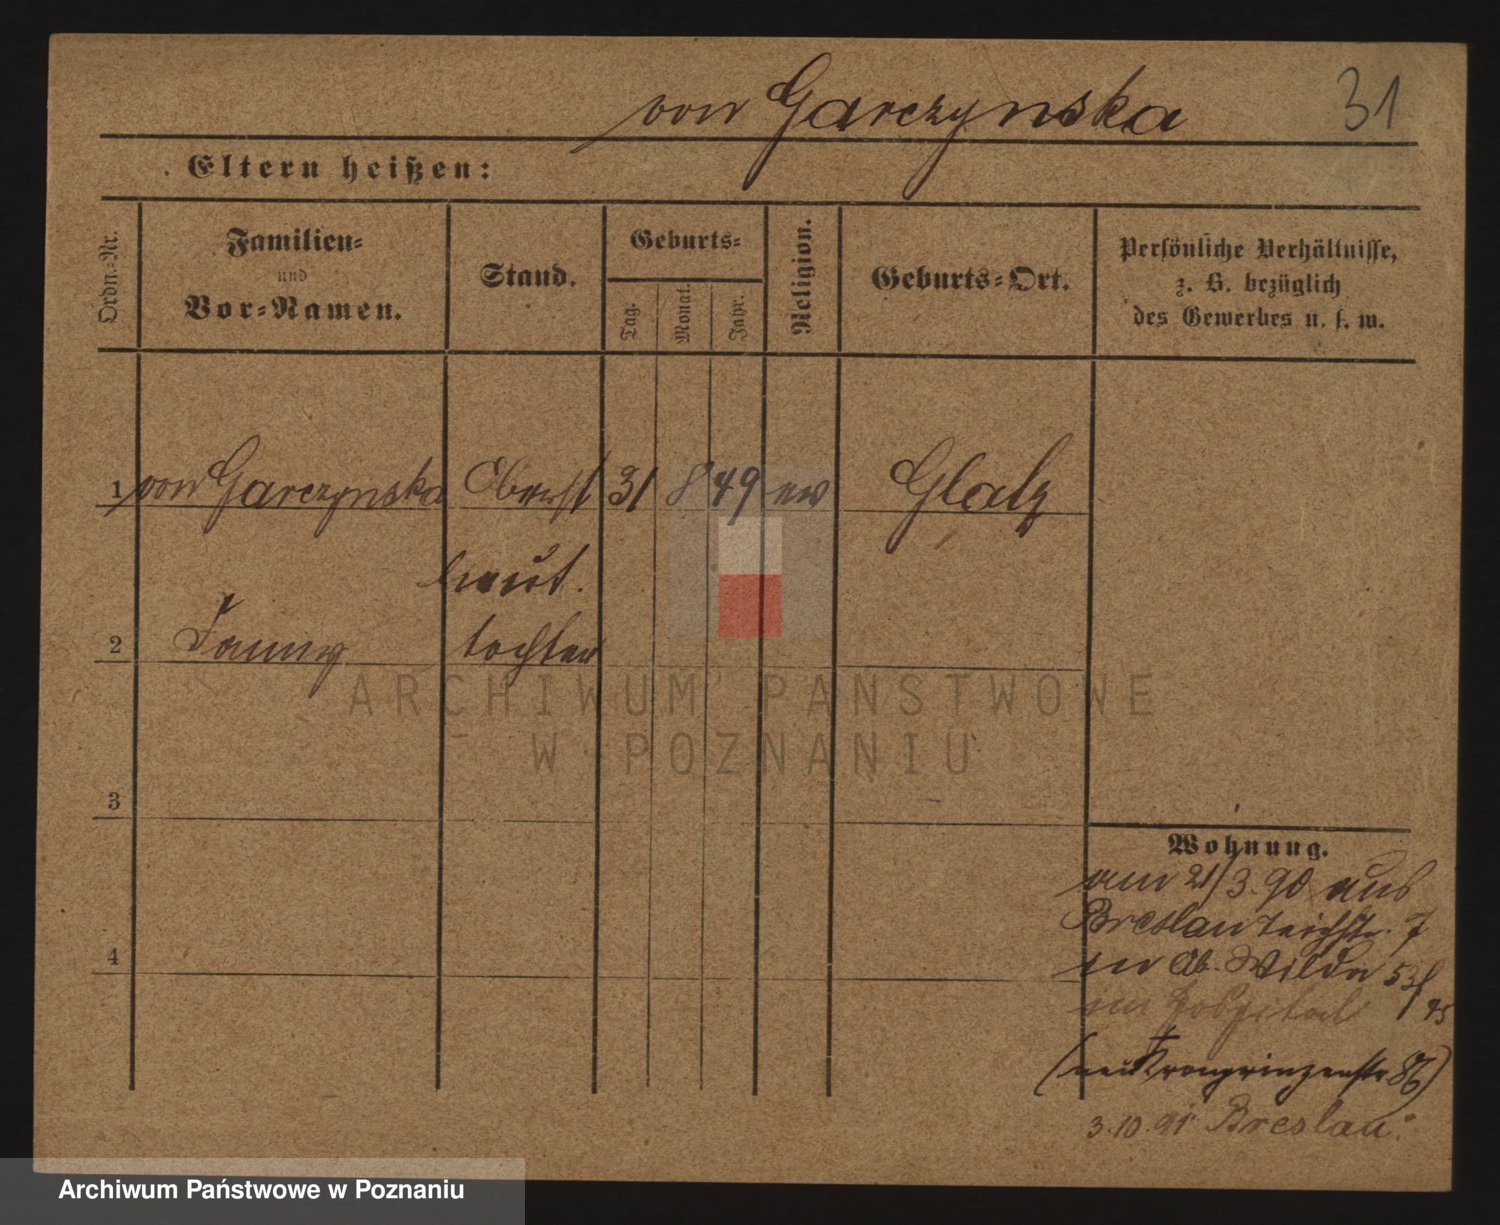 von Garczynska
31
Eltern heißen:
Ordn.-Nr.
Familien-
und
Vor-Namen.
Stand.
Geburts-
Tag.
Monat.
Jahr.
Religion.
Geburts-Ort.
Persönliche Verhältnisse,
z. B. bezüglich
des Gewerbes u. s. w.
1 von Garczynska Oberst 31 8 49 ev Glatz
lieut.
2 Fanny tochter
ARCHIWUM PAŃSTWOWE
W POZNANIU
3
Wohnung.
am 21/3.90 aus
Breslau Teichstr. 7
in Ob. Wilda 53/
45
im Hospital
4
(neu Kronprinzenstr 86)
3.10.91 Breslau.
Archiwum Państwowe w Poznaniu